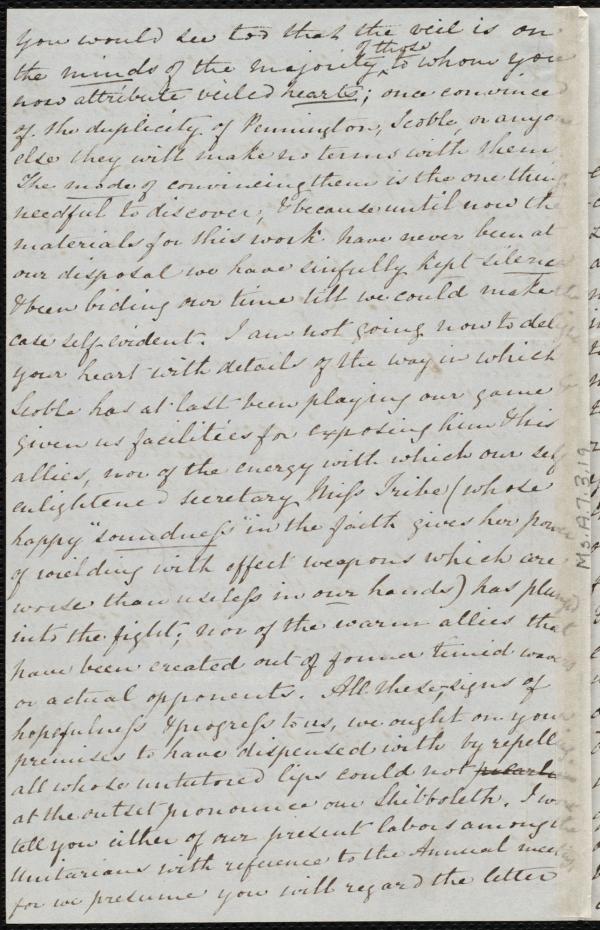 you would see too that the veil is on
of those
the minds of the majority ^ to whom you
now attribute veiled hearts; once convinced
of the duplicity of Pennington, Scoble, or anyone
else they will make no terms with them.
The mode of convincing them is the one thing
needful to discover, & because until now the
materials for this work have never been at
our disposal we have sinfully kept silence
& been biding our time till we could make the
case self-evident. I am not going now to
your heart with details of the way in which
Scoble has at last been playing our game &
given us facilities for exposing him & his
allies, nor of the energy with which our self
enlightened secretary Miss Tribe (whose
happy "soundness" in the faith gives her power
of wielding with effect weapons which are
worse than useless in our hands) has plunged
into the fight; nor of the warm allies that
have been created out of former timid
or actual opponents. All these, signs of
hopefulness & progress to us, we ought on your
premises to have dispensed with by repell
all whose untutored lips could not
at the outset pronounce our Shibboleth. I
tell you either of our present labors among
Unitarians with reference to the Annual
for we presume you will regard the letter
Ms.A.7.3.19